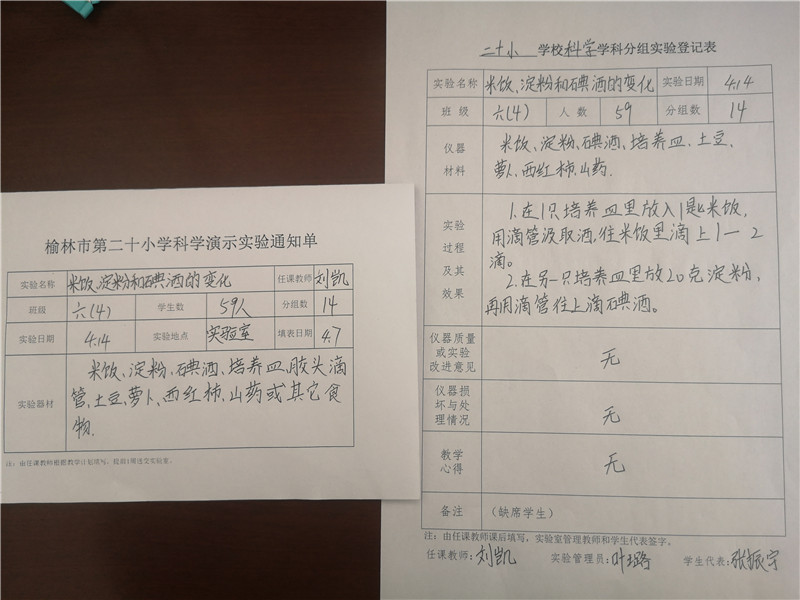 榆林市第二十小学科学演示实验通知单
实验名称 米饭、淀粉和碘酒的变化 任课教师 刘凯
班级 六(4) 学生数 59人 分组数 14
实验日期 4.14 实验地点 实验室 填表日期 4.7
实验器材
米饭、淀粉、碘酒、培养皿、胶头滴
管、土豆、萝卜、西红柿、山药或其它食
物.
注：由任课教师根据教学计划填写，提前1周送交实验室。
二十小 学校科学学科分组实验登记表
实验名称 米饭、淀粉和碘酒的变化 实验日期 4.14
班级 六(4) 人数 59 分组数 14
仪器
材料
米饭、淀粉、碘酒、培养皿、土豆、
萝卜、西红柿、山药.
实验
过程
及其
效果
1.在1只培养皿里放入1匙米饭,
用滴管汲取酒,往米饭里滴上1一2
滴。
2.在另一只培养皿里放20克淀粉,
再用滴管往上滴碘酒。
仪器质量
或实验
改进意见
无
仪器损
坏与处
理情况
无
教学
心得
无
备注 （缺席学生）
注：由任课教师课后填写，实验室管理教师和学生代表签字。
任课教师:刘凯 实验管理员:叶璐 学生代表:张振宇